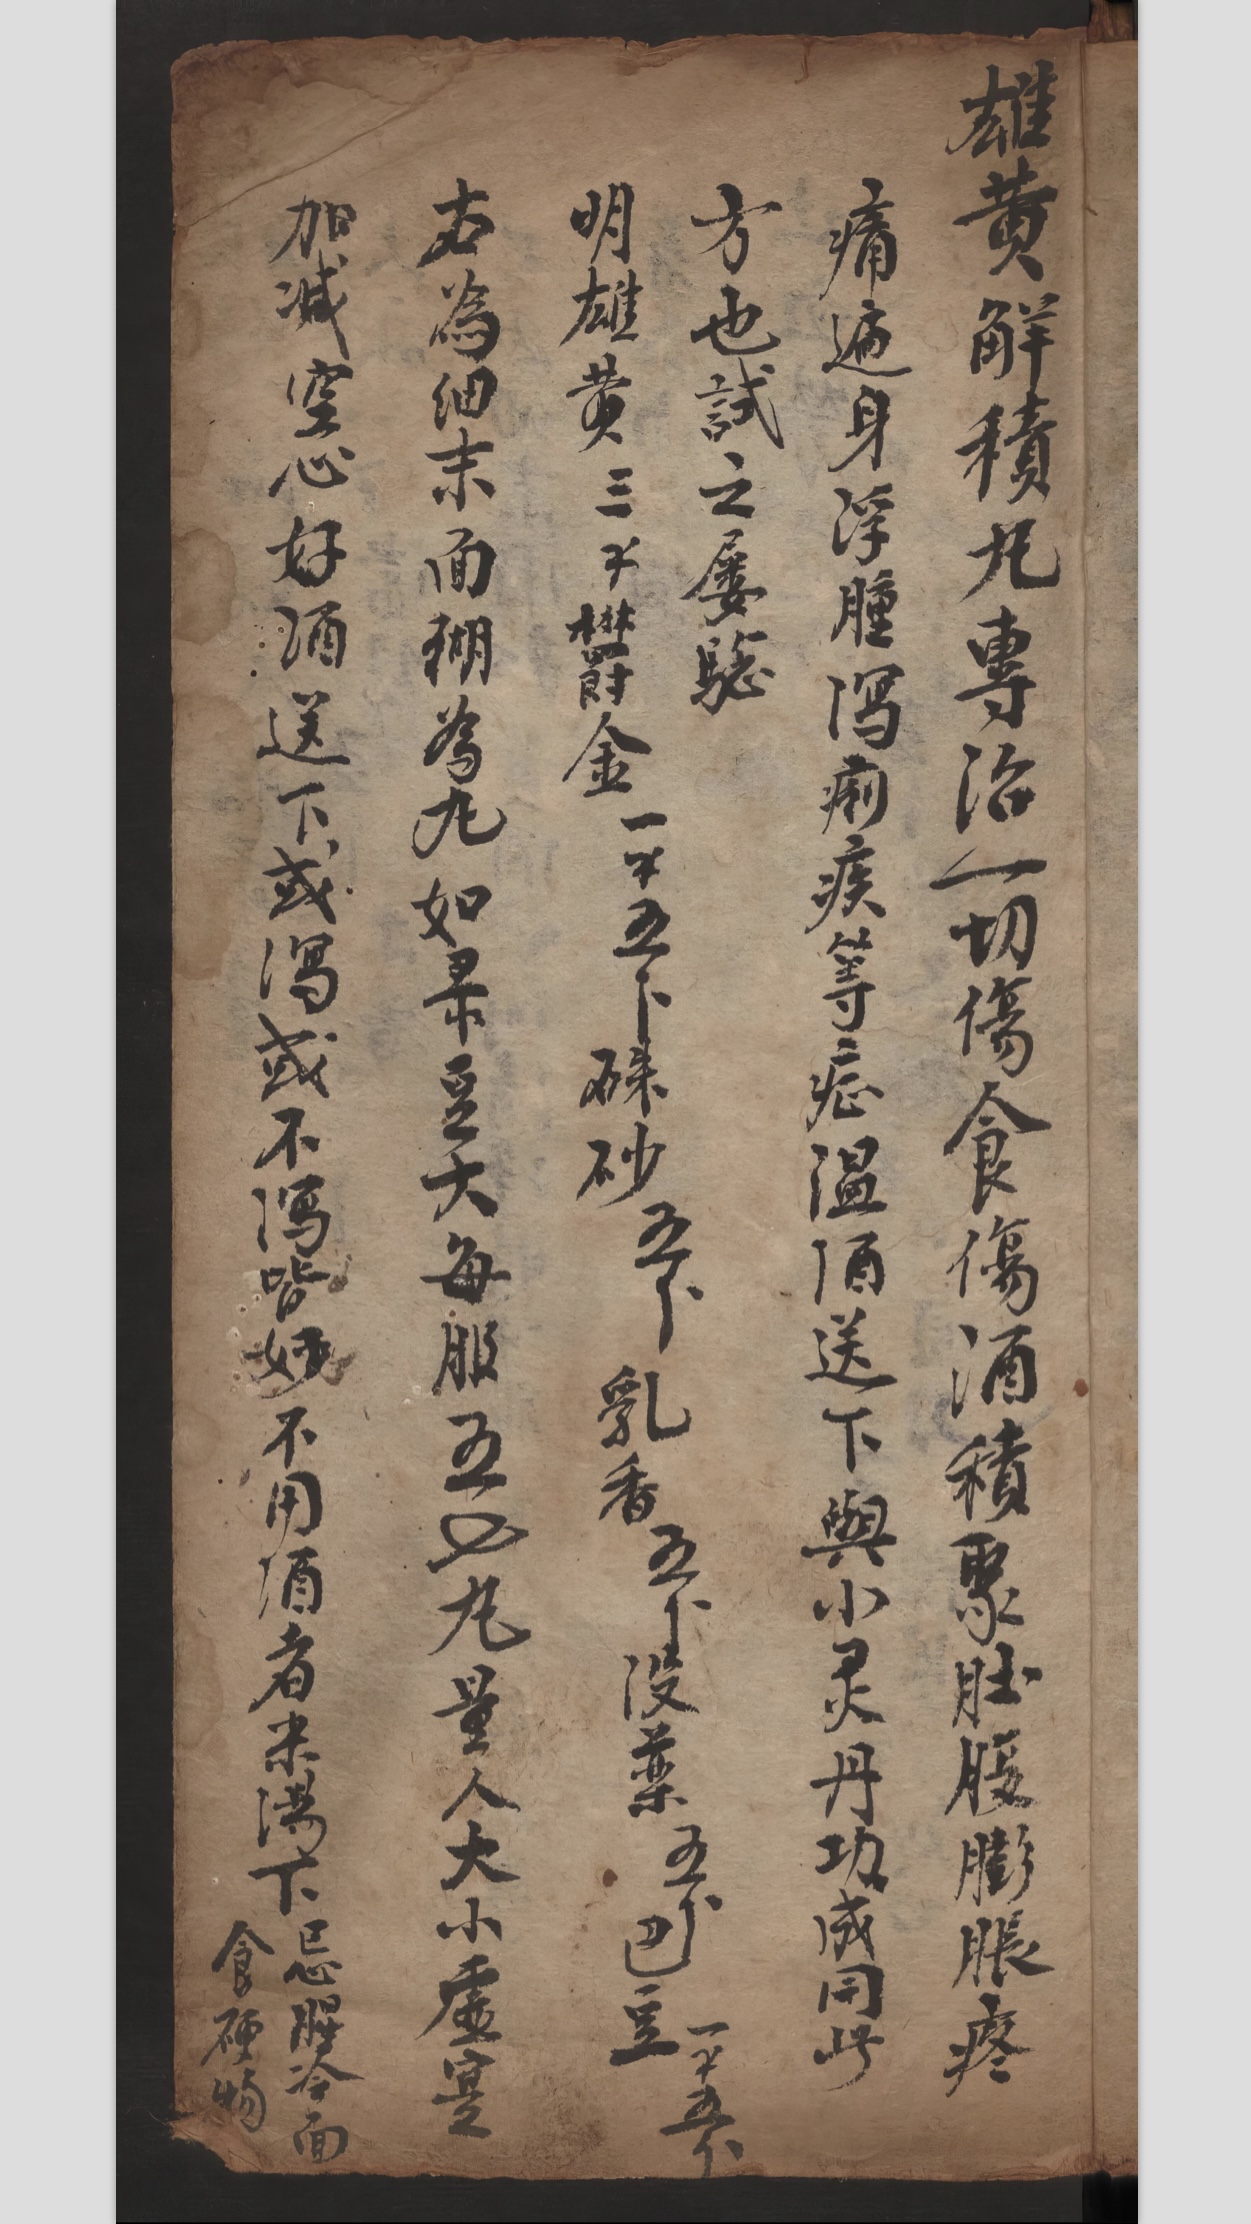 雄黄解積丸專治一切傷食傷酒積聚肚腹膨脹疼
痛遍身浮腫瀉痢疾等症温酒送下與小灵丹功成用此
方也試之屡騐
明雄黄三錢欝金一錢五分硃砂五分乳香五分没藥五分巴豆一錢五分
右為細末面糊為丸如菉豆大每服五七丸量人大小虚寔
加减空心好酒送下或瀉或不瀉皆妙不用酒者米湯下
忌腥冷面
食硬物